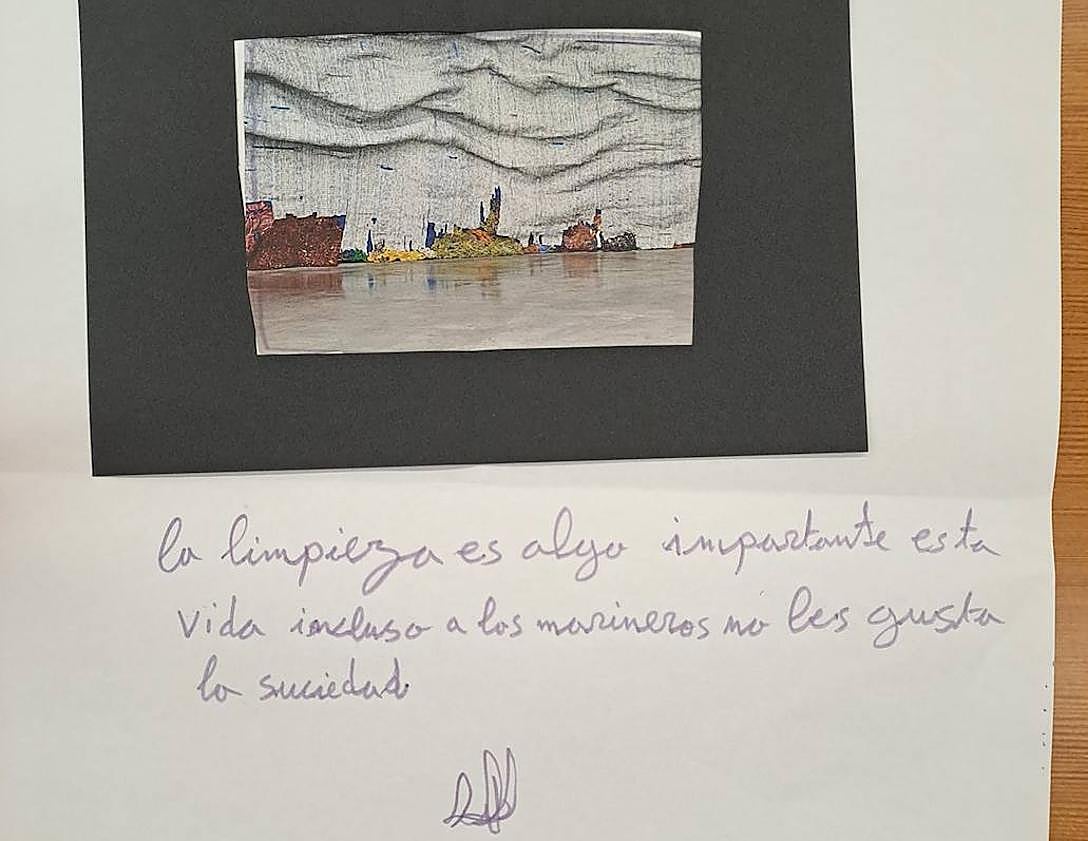 la limpieza es algo importante esta
vida incluso a los marineros no les gusta
la suciedad